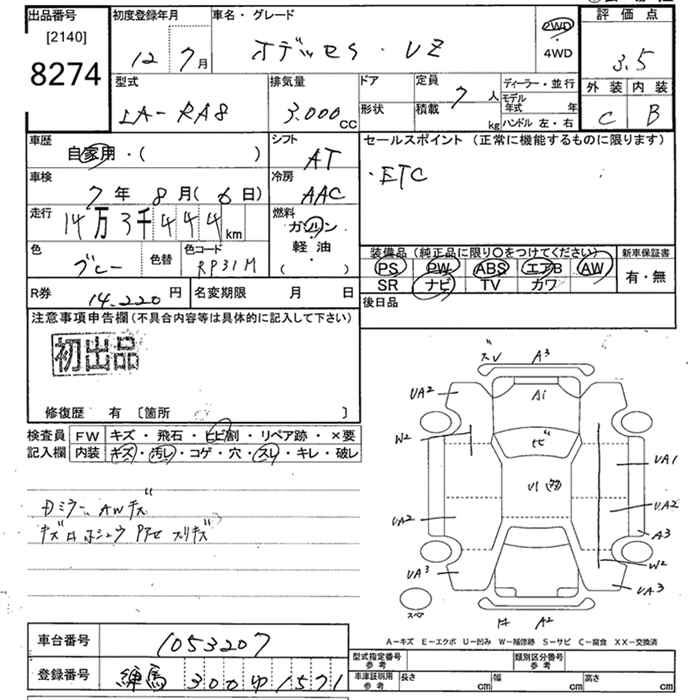 出品番号 初度登録年月 車名・グレード 評価点
[2140]
8274
12 7月 オデッセイ・VZ 2WD・4WD 3.5
型式 排気量 ドア 定員 ディーラー・並行 外装 内装
7人 モデル年式 年
LA-RA8 3,000cc 形状 積載 kg ハンドル 左・右 C B
車歴 シフト セールスポイント (正常に機能するものに限ります)
自家用・( ) AT
・ETC
車検 冷房
7年8月(6日) AAC
走行 燃料
14万3千444km ガソリン
軽油
( )
色 色替 色コード 装備品 (純正品に限り○をつけてください) 新車保証書
ブルー RP31M PS PW ABS エアB AW 有・無
SR ナビ TV カワ
R券 14,220円 名変期限 月 日 後日品
注意事項申告欄(不具合内容等は具体的に記入して下さい)
初出品
修復歴 有 [箇所 ]
検査員 FW キズ・飛石・ヒビ割・リペア跡・×要
記入欄 内装 キズ・汚レ・コゲ・穴・スレ・キレ・破レ
Dミラー AWキズ
A3
UA2 A1
W2
UA1
UA2 UA2
A3
W2
UA3 UA3
スペア A2
A-キズ E-エクボ U-凹み W-補修跡 S-サビ C-腐食 XX-交換済
車台番号 1053207
型式指定番号 参考 類別区分番号 参考
登録番号 練馬 300 ゆ 1571
車庫証明用 参考 長さ cm 幅 cm 高さ cm